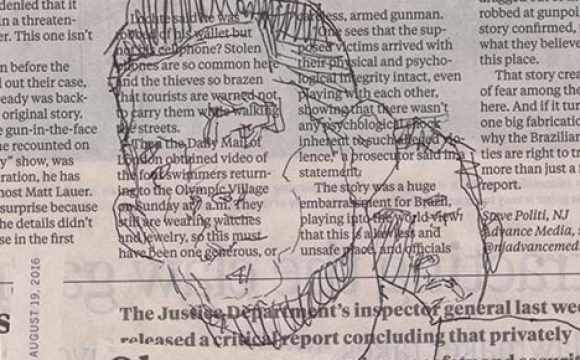 denied that it
in a threaten-
er. This one isn't
n before the
out their case,
eady was back-
original story.
e gun-in-the-face
he recounted on
y” show, was
ration, he has
host Matt Lauer.
surprise because
he details didn't
se in the first
Lochte said he was
robbed of his wallet but
not his cellphone? Stolen
phones are so common here
and the thieves so brazen
that tourists are warned not
to carry them while walking
the streets.
Then the Daily Mail of
London obtained video of
the four swimmers return-
ing to the Olympic Village
on Sunday at a.m. They
still are wearing watches
and jewelry, so this must
have been one generous, or
careless, armed gunman.
One sees that the sup-
posed victims arrived with
their physical and psycho-
logical integrity intact, even
playing with each other,
showing that there wasn't
any psychological shock
inherent to such alleged vio-
lence,” a prosecutor said in a
statement.
The story was a huge
embarrassment for Brazil,
playing into the world view
that this is a lawless and
unsafe place, and officials
robbed at gunpoi
story confirmed,
what they believe
this place.
That story crea
of fear among the
here. And if it tur
one big fabricatio
why the Brazilian
ties are right to tr
more than just a f
report.
Steve Politi, NJ
Advance Media, s
@njadvancemed
AUGUST 19, 2016
s
The Justice Department's inspector general last we
released a critical report concluding that privately